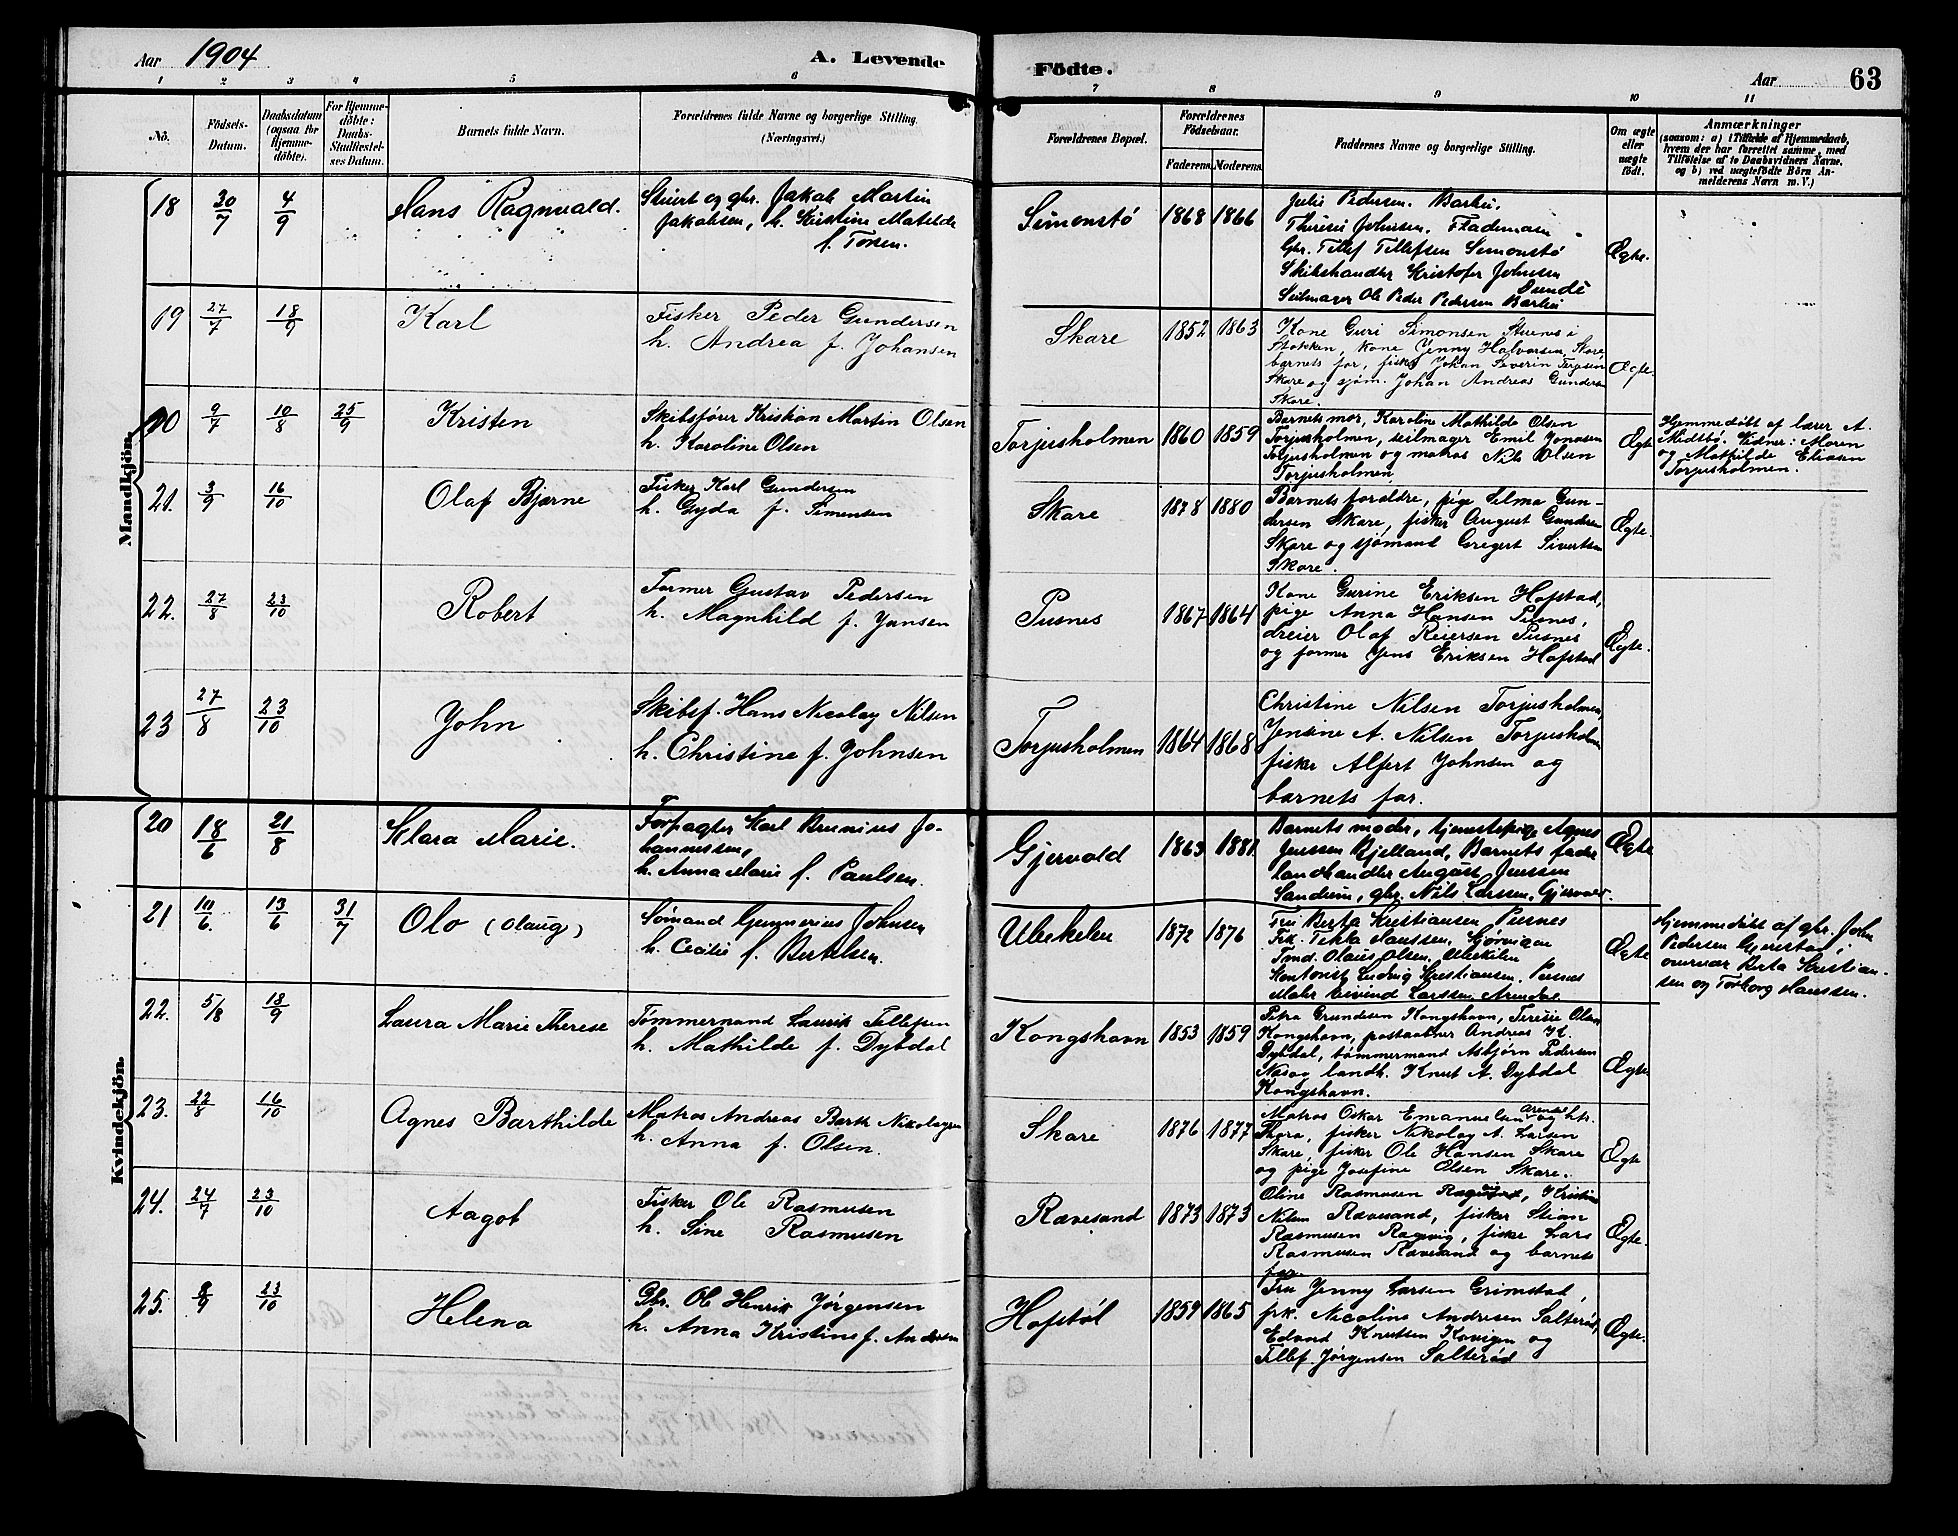 Aar 1904
A. Levende Födte.
Aar 63
1 2 3 4 5 6 7 8 9 10 11
No.
Födsels-Datum.
Daabsdatum (ogsaa for Hjemme-döbte).
For Hjemme-döbte: Daabs-Stadfæstel-ses Datum.
Barnets fulde Navn.
Forældrenes fulde Navne og borgerlige Stilling.
(Næringsvei.)
Forældrenes Bopæl.
Forældrenes Födselsaar.
Faderens. Moderens.
Faddernes Navne og borgerlige Stilling.
Om ægte eller uægte født.
Anmærkninger
(saasom: a) i Tilfælde af Hjemmedaab,
hvem der har forrettet samme, med
Tilföielse af to Daabsvidners Navne,
og b) ved uægtefödte Börn An-
melderens Navn m. V.)
Mandkjön.
18 30/7 4/9 Hans Ragnvald.
Stuert og gbr. Jakob Martin
Jakobsen, h. Kristine Matilde
f. Tossen.
Simonstø 1868 1866
Julie Pedersen. Barbu.
Johnsen. Flademoen
Gbr. Tellef Tellefsen Simonstø
Skibshandler Kristofer Johnsen
Seilmager Ole Peder Pedersen Barbu
Ægte.
19 27/7 18/9 Karl
Fisker Peder Gundersen
h. Andrea f. Johansen
Skare 1852 1863
Kone Guri Simonsen Stuenes i
Stokken, kone Jenny Halvorsen, Skare,
barnets far, fisker Johan Severin Terjesen
Skare og sjøm. Johan Andreas Gundersen
Skare.
Ægte.
20 9/7 10/8 25/9 Kristen
Skibsfører Kristian Martin Olsen
h. Karoline Olsen
Torjusholmen 1860 1859
Barnets mor, Karoline Mathilde Olsen
Torjusholmen, seilmager Emil Jonasen
Torjusholmen og matros Nils Olsen
Torjusholmen.
Ægte
Hjemmedöbt af lærer A.
Midtbø. Vidner: Maren
og Mathilde Eliasen
Torjusholmen.
21. 3/9 16/10 Olaf Bjarne
Fisker Karl Gundersen
h. Gyda f. Simonsen
Skare 1878 1880
Barnets foraldre, pige Selma Gun-
dersen Skare, fisker August Gundersen
Skare og sjømand Gregert Sivertsen
Skare.
Ægte.
22. 27/8 23/10 Robert
Former Gustav Pedersen
h. Magnhild f. Jansen
Pusnes 1867 1864
Kone Gurine Eriksen Hofstad,
pige Anna Hansen Pusnes,
dreier Olaf Reiersen Pusnes
og former Jens Eriksen Hofstad
Ægte.
23 27/8 23/10 John
Skibsf. Hans Nicolay Nilsen
h. Christine f. Johnsen
Torjusholmen 1864 1868
Christine Nilsen Torjusholmen,
Jensine A. Nilsen Torjusholm
fisker Alfert Johnsen og
barnets far.
Kvindekjön.
20 18/6 21/8 Klara Marie.
Forpagter Karl Brunius Jo-
hannessen,
h. Anna Marie f. Paulsen.
Gjervold 1863 1881.
Barnets moder, tjenestepige Agnes
Jenssen Bjelland, Barnets fader
Landhandler August Jenssen
Sandum, gbr. Nils Larssen, Gjervold.
Ægte
21 10/6. 13/6 31/7 Olo (Olaug)
Sömand Gunnerius Johnsen
h. Cecilie f. Bertelsen.
Ubekilen 1872 1876
Fru Berta Kristiansen, Pusnes
Frk. Tekla Hanssen, Sjørvigen
Tmd. Olaus Olsen, Ubekilen
Kontorist Ludvig Kristiansen, Pusnes
Maler Eivind Larssen, Arendal
Ægte
Hjemmedöbt af gbr. John
Pedersen Gjerestad i
overvær Berta Kristian-
sen og Torborg Hanssen.
22. 5/8 18/9 Laura Marie Therese
Tømmermand Laurik Tellefsen
h. Mathilde f. Dybdal
Kongshavn 1853 1859
Petra Gundersen Kongshavn, Teresie Olsen
Kongshavn, postaabner Andreas K.
Dybdal, tømmermand Asbjørn Pedersen
Næs og landh. Knut A. Dybdal
Kongshavn.
Ægte
23. 22/8 16/10 Agnes Barthilde
Matros Andreas Barth Nikolaysen
h. Anna f. Olsen.
Skare 1876 1877
Matros Oskar Emanuelsen Arendal og htr.
Thora, fisker Nikolay A. Larsen
Skare, fisker Ole Hansen Skare
og pige Josefine Olsen Skare.
Ægte
24. 24/7 23/10 Aagot
Fisker Ole Rasmusen
h. Sine Rasmusen
Rævesand 1873 1873
Oline Rasmusen Ragevig, Kristine
Nilsen Rævesand, fisker Stian
Rasmusen Ragevig, fisker Lars
Rasmusen Rævesand og barnets
far.
Ægte.
25. 8/9 23/10 Helena
Gbr. Ole Henrik Jørgensen
h. Anna Kristine f. Andersen
Hofstøl 1859 1865
Fru Jenny Larsen Grimstad,
frk. Nicoline Andersen Salterød,
Edvard Knutsen Kovigen og
Tellef Jørgensen Salterød
Ægte.